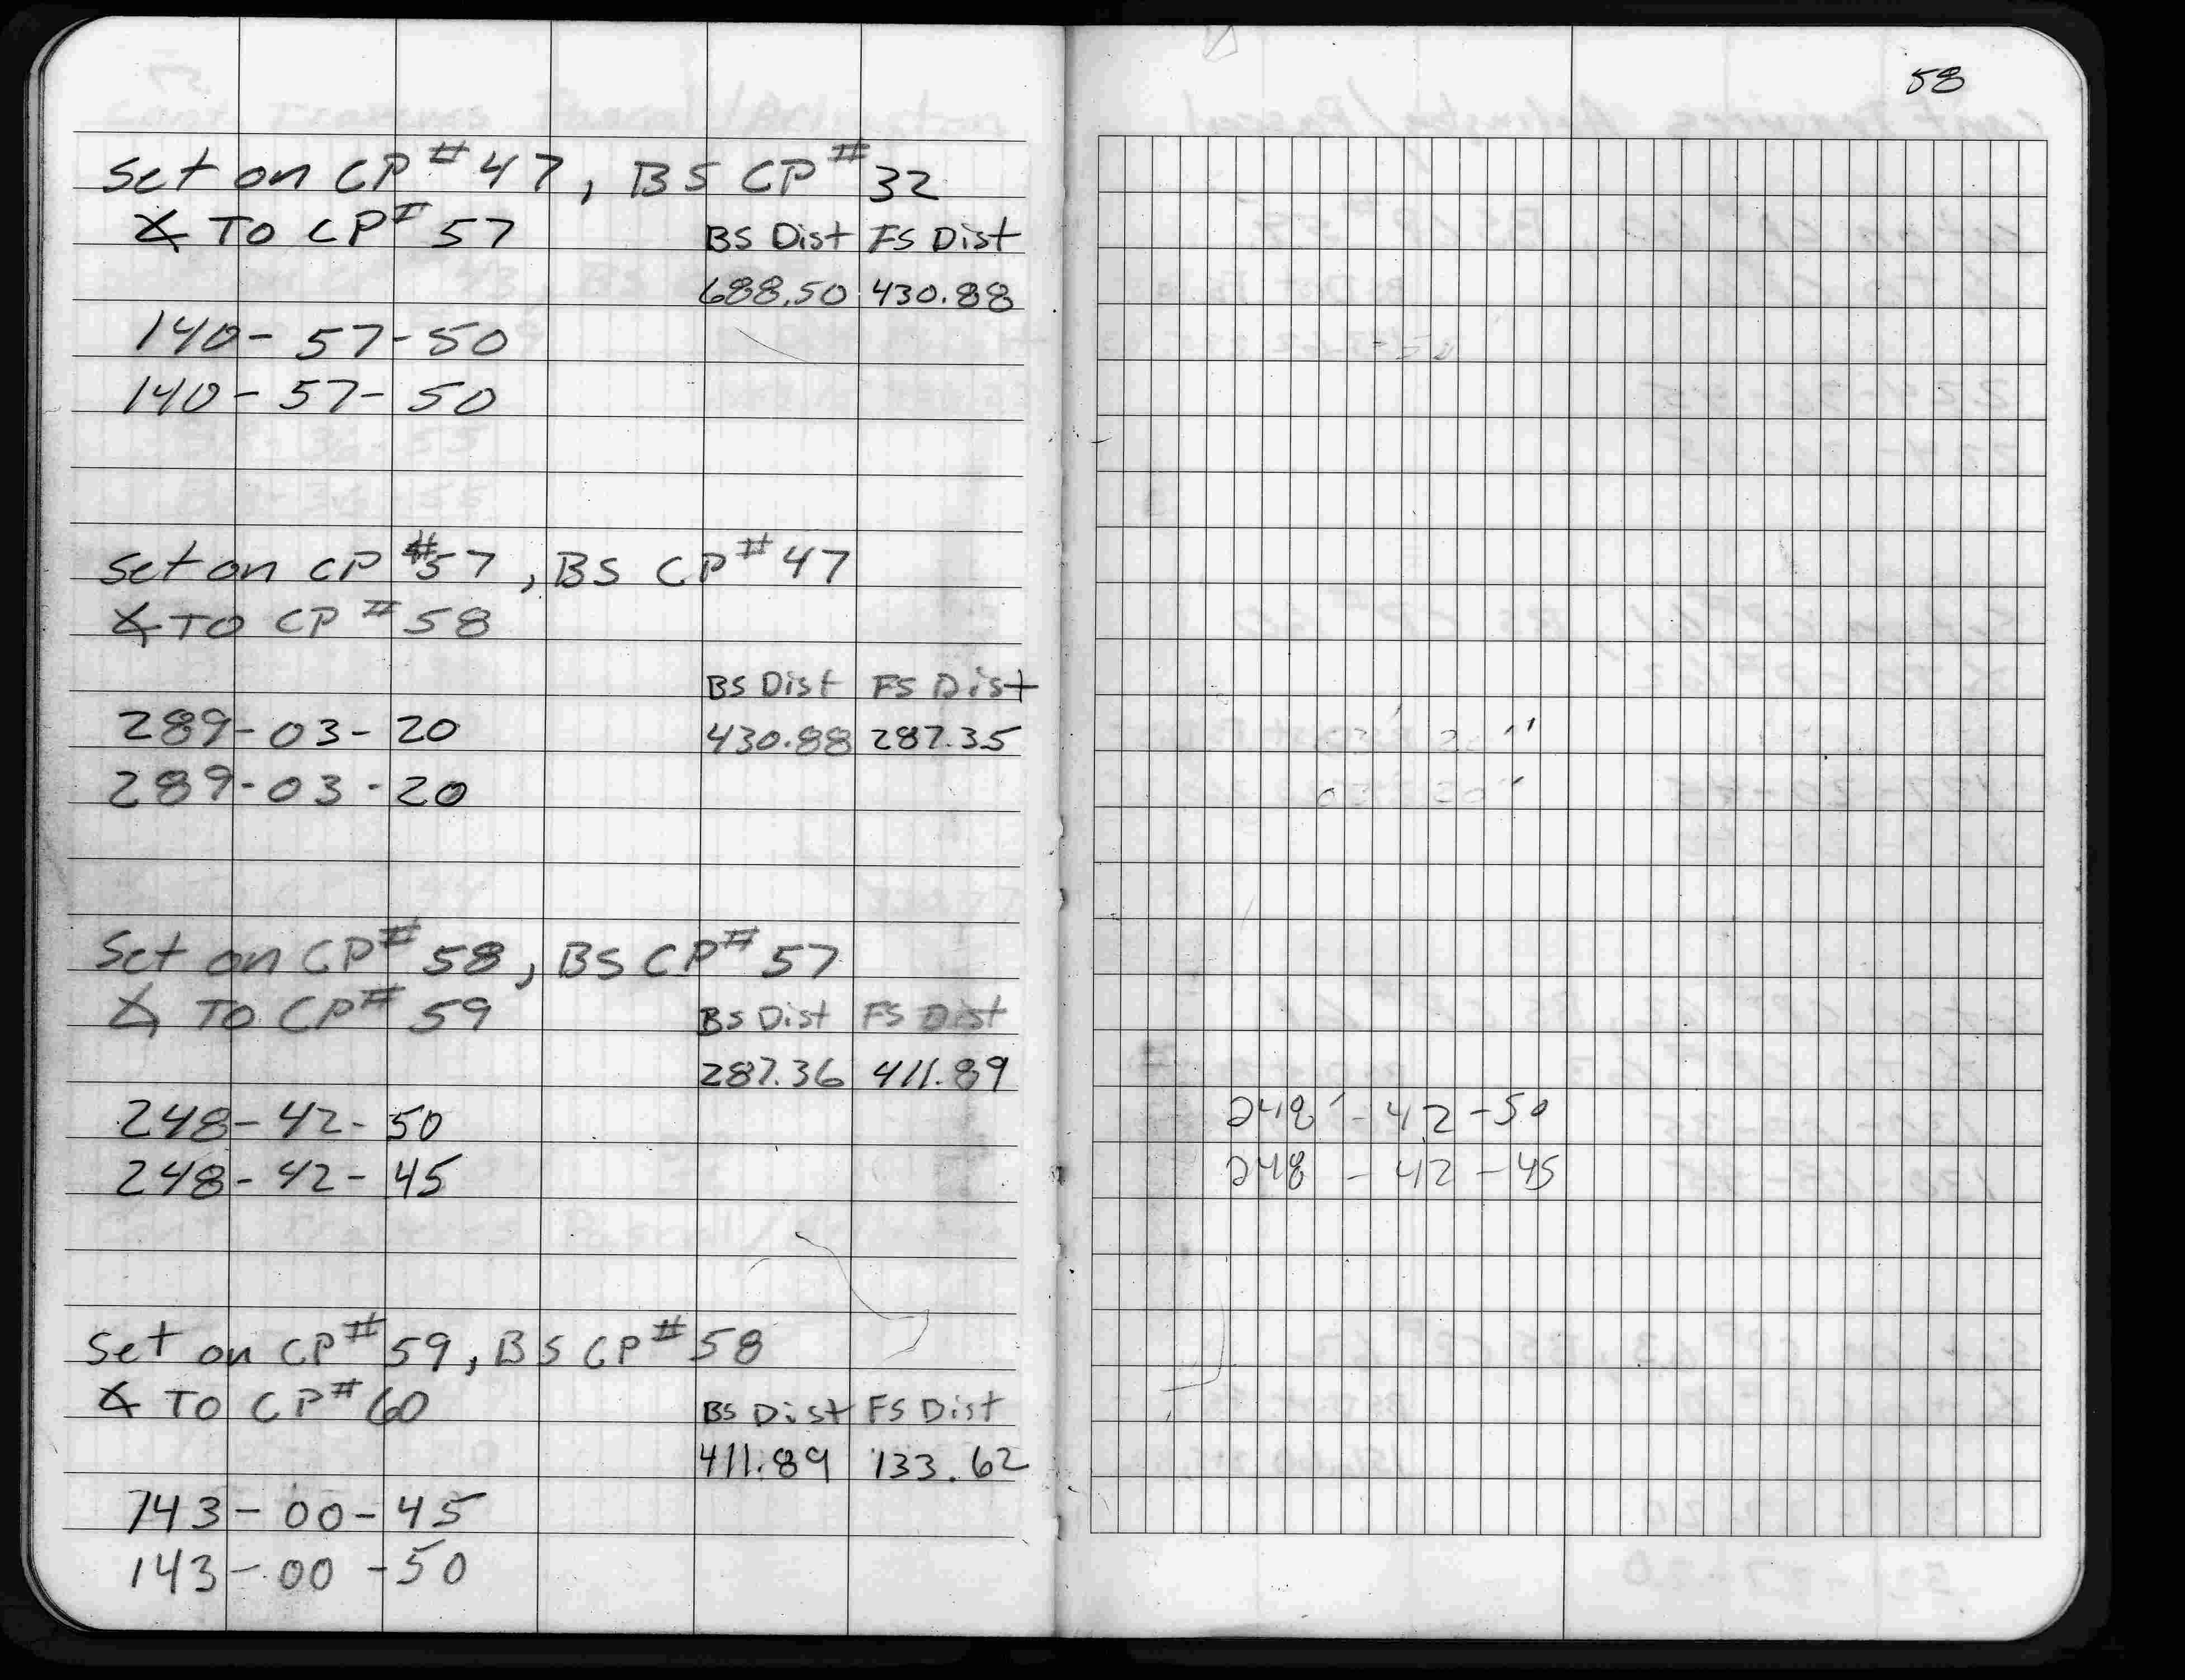 Set on CP # 47, BS CP # 32
∡ TO CP # 57 BS Dist FS Dist
688.50 430.88
140-57-50
140-57-50
Set on CP #57, BS CP # 47
∡ TO CP # 58
BS Dist FS Dist
289-03-20 430.88 287.35
289-03-20
Set on CP # 58, BS CP # 57
∡ TO CP # 59 BS Dist FS Dist
287.36 411.89
248-42-50
248-42-45
Set on CP # 59, BS CP # 58
∡ TO CP # 60 BS Dist FS Dist
411.89 133.62
143-00-45
143-00-50
58
248-42-50
248-42-45